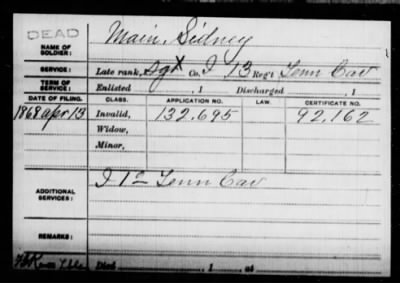 DEAD
NAME OF SOLDIER: Main, Sidney
SERVICE: Late rank, Sgt Co. I 13 Reg't Tenn Cav
TERM OF SERVICE: Enlisted , 1 Discharged , 1
DATE OF FILING. CLASS. APPLICATION NO. LAW. CERTIFICATE NO.
1868 apr 13 Invalid, 132.695 92,162
Widow,
Minor,
ADDITIONAL SERVICES: I 12 Tenn Cav
REMARKS:
Died , 1 , at